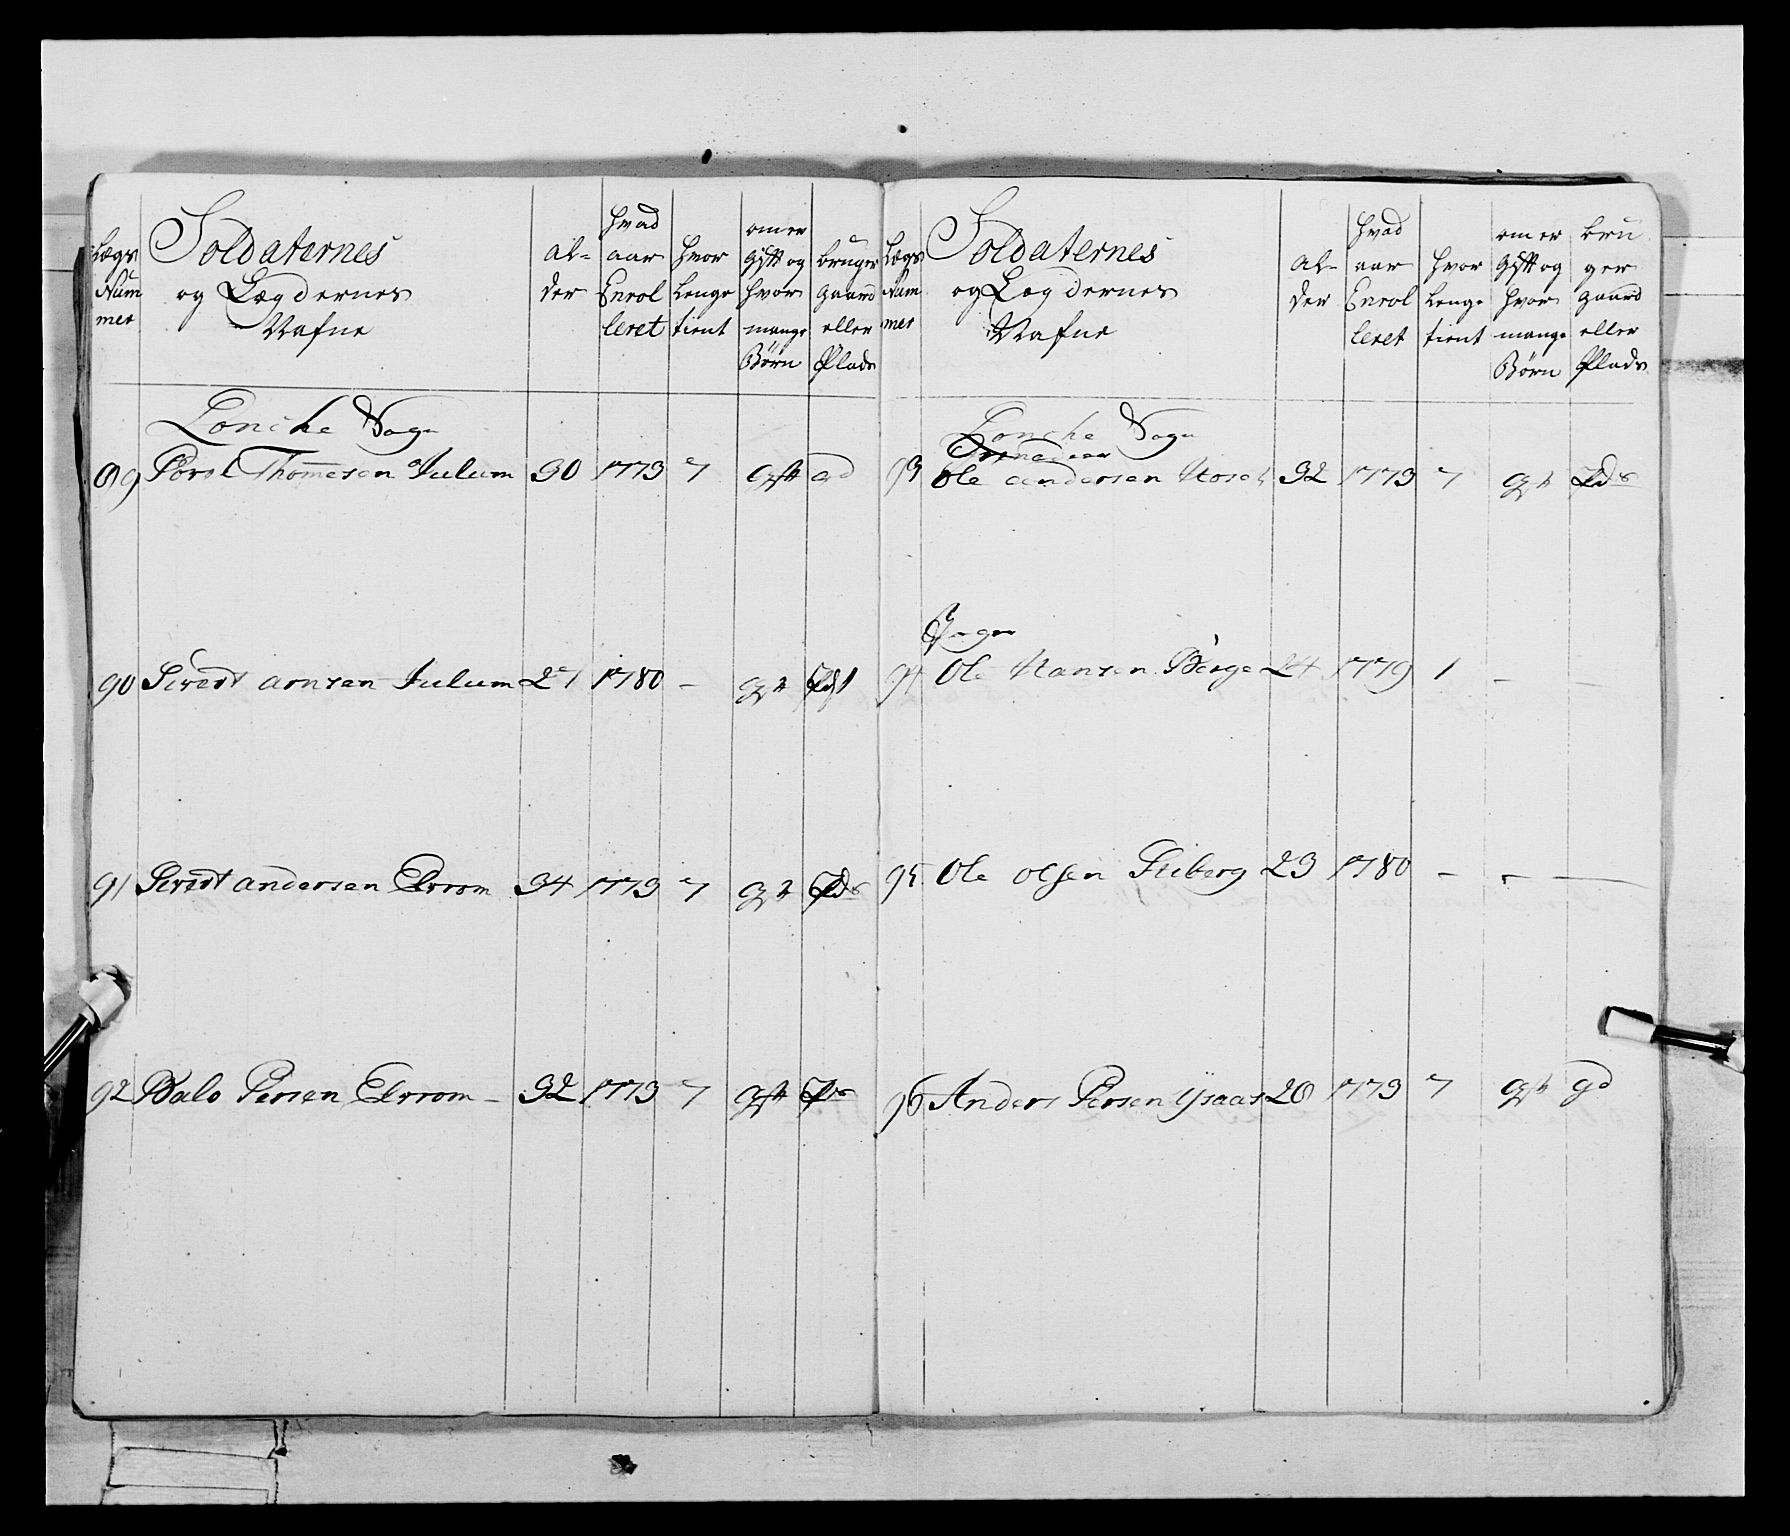 Lægs Nummer
Soldaternes
og Lægdernes
Nafne
alder
hvad aar Enrolleret
hvor lenge tient
om er gift og hvor mange Børn
bruger gaard eller Plads
Lonche Sogn
89 Thomesen Julum 30 1773 7 gift
90 Sivert arnsen Julum 27 1780 -
91 Sivert andersen 34 1773 7 Pds
92 Persen 32 1773 7 gift
Lægs Nummer
Soldaternes
og Lægdernes
Nafne
alder
hvad aar Enrolleret
hvor lenge tient
om er gift og hvor mange Børn
bruger gaard eller Plads
Lonche Sogn
Grenadeer
93 Ole andersen 32 1773 7 Pds
Jæger
94 Ole Hansen Berge 24 1779 1 - -
95 Ole olsen Stiberg 23 1780 - - -
96 Anders Persen 28 1773 7 gift gd